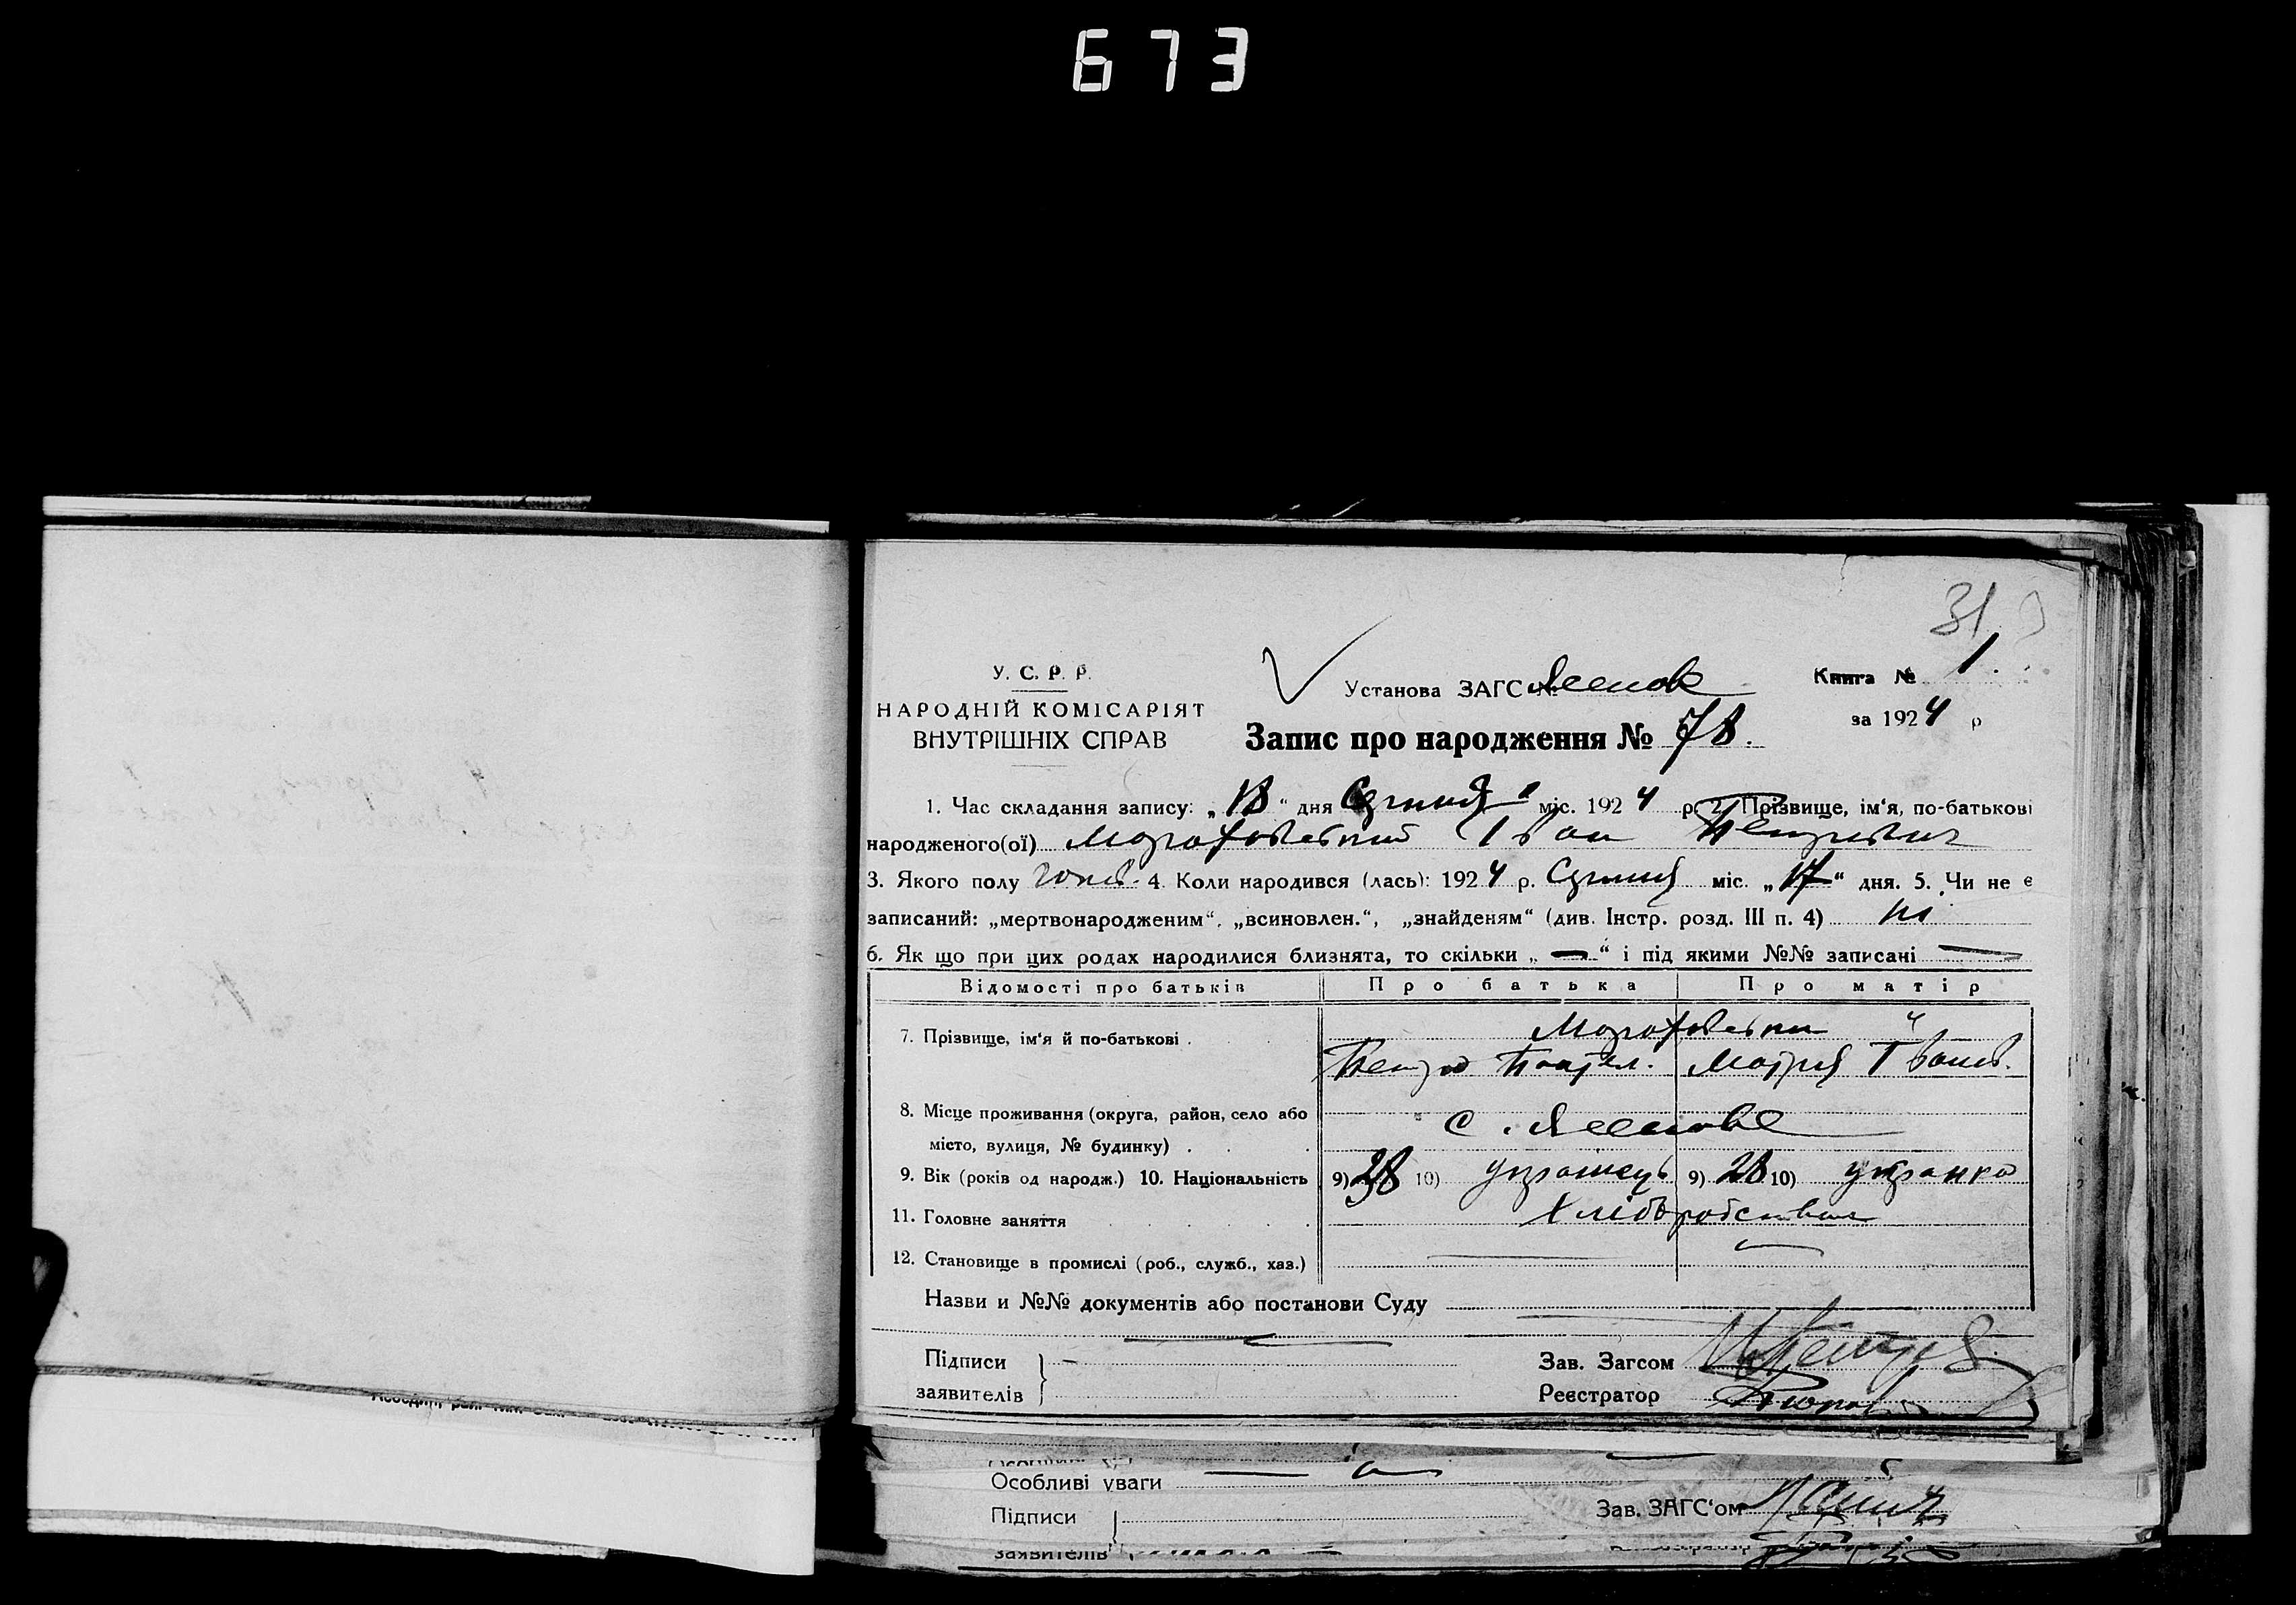 673
31
У. С. Р. Р.
НАРОДНІЙ КОМІСАРІЯТ
ВНУТРІШНІХ СПРАВ
Установа ЗАГС №
Книга № 1.
за 1924 р
Запис про народження № 78.
1. Час складання запису: „18“ дня Серпня міс. 1924 р. 2. Прізвище, ім‘я, по-батькові
народженого(ої) Іван Петрович
3. Якого полу чолов. 4. Коли народився (лась): 1924 р. Серпня міс. „17“ дня. 5. Чи не є
записаний: „мертвонародженим“, „всиновлен.“, „знайденям“ (див. Інстр. розд. III п. 4) ні
6. Як що при цих родах народилися близнята, то скільки „ — “ і під якими №№ записані —
Відомості про батьків Про батька Про матір
7. Прізвище, ім‘я й по-батькові .
Петро Марія Іванов.
8. Місце проживання (округа, район, село або
місто, вулиця, № будинку) . с.
9. Вік (років од народж.) 10. Національність 9) 28 10) українець 9) 28 10) українка
11. Головне заняття Хліборобство
12. Становище в промислі (роб., служб., хаз.)
Назви и №№ документів або постанови Суду
Підписи
заявителів
Зав. Загсом
Реєстратор
Особливі уваги
Підписи
Зав. ЗАГС‘ом
заявителів